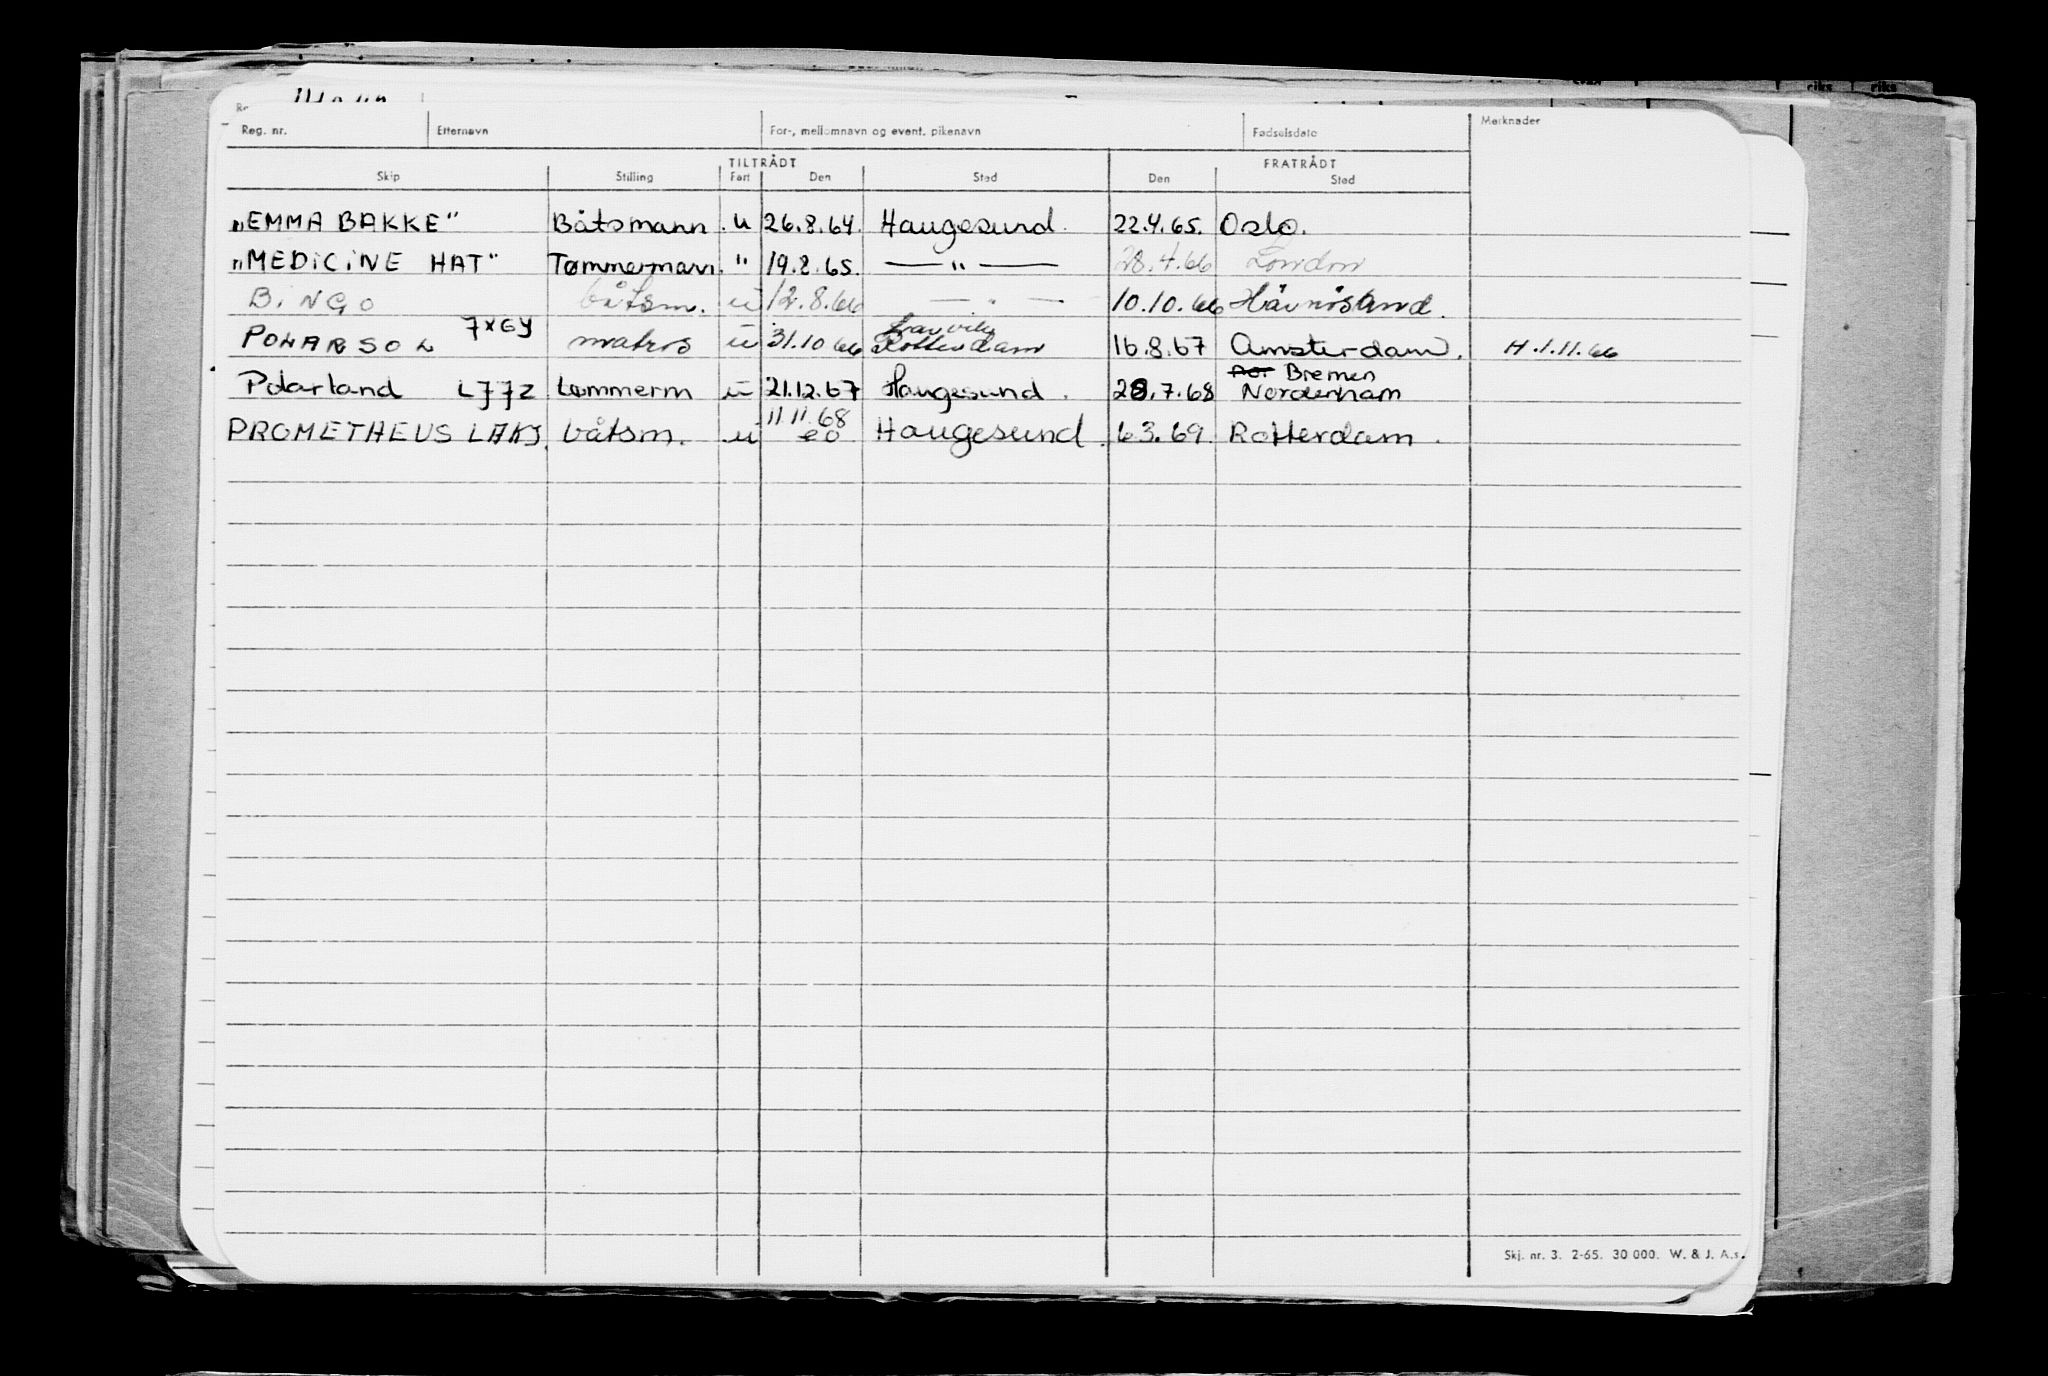 Reg. nr. Etternavn For-, mellomnavn og event. pikenavn Fødselsdato Merknader
TILTRÅDT FRATRÅDT
Skip Stilling Fart Den Sted Den Sted
„EMMA BAKKE" Båtsmann . u 26.8.64. Haugesund. 22.4.65. Oslo.
„MEDICINE HAT" Tømmermann. " 19.8.65. —— " —— 28.4.66 London
BINGO båtsm. u 12.8.66 — " — 10.10.66
POLARSOL 7XGY matros u 31.10 66 Rotterdam 16.8.67 Amsterdam. H.1.11.66
Bremen
Polarland LJJZ tømmerm u 21.12.67 Haugesund. 28.7.68 Nordenham
11 11 68
PROMETHEUS LAKJ. båtsm. u Haugesund. 6 3.69 Rotterdam.
Skj. nr. 3. 2-65. 30 000. W. & J. A.s.